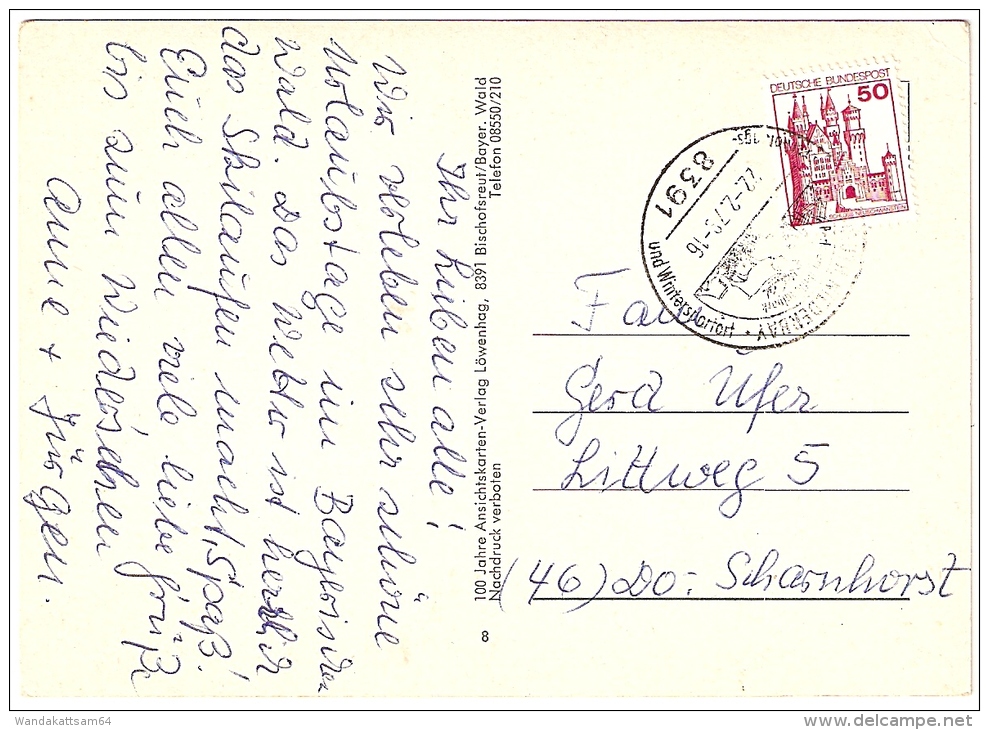 Ihr Lieben alle!
Wir verleben sehr schöne
Urlaubstage im Bayrischen
Wald. Das Wetter ist herrlich
das Skilaufen macht Spaß!
Euch allen viele liebe Grüße
bis zum Wiedersehen
Anne + Jürgen.
100 Jahre Ansichtskarten-Verlag Löwenhag, 8391 Bischofsreut/Bayer. Wald
Nachdruck verboten Telefon 08550/210
8
DEUTSCHE BUNDESPOST
50
SCHLOSS NEUSCHWANSTEIN
8391
22.-2.79-16
und Wintersportort
Fam
Gerd Ufer
Littweg 5
(46) Do.- Scharnhorst
Wandakattsam64
delcampe.net